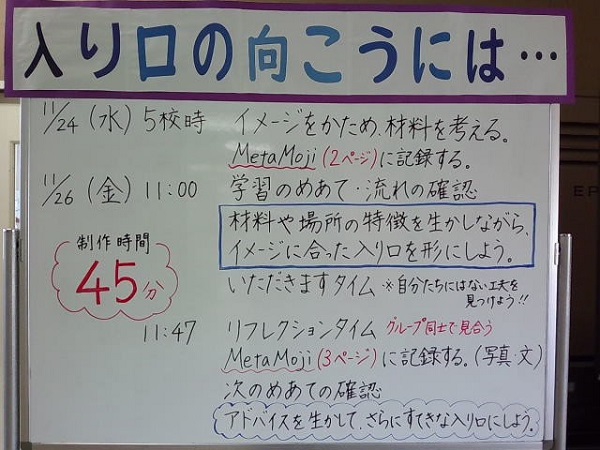 入り口の向こうには…
11/24(水) 5校時 イメージをかため、材料を考える。
MetaMoji(2ページ)に記録する。
11/26(金) 11:00 学習のめあて・流れの確認
材料や場所の特徴を生かしながら、
イメージに合った入り口を形にしよう。
制作時間
45分
いただきますタイム ※自分たちにはない工夫を
見つけよう!!
11:47 リフレクションタイム グループ同士で見合う
MetaMoji(3ページ)に記録する。(写真・文)
次のめあての確認
アドバイスを生かして、さらにすてきな入り口にしよう。
EP